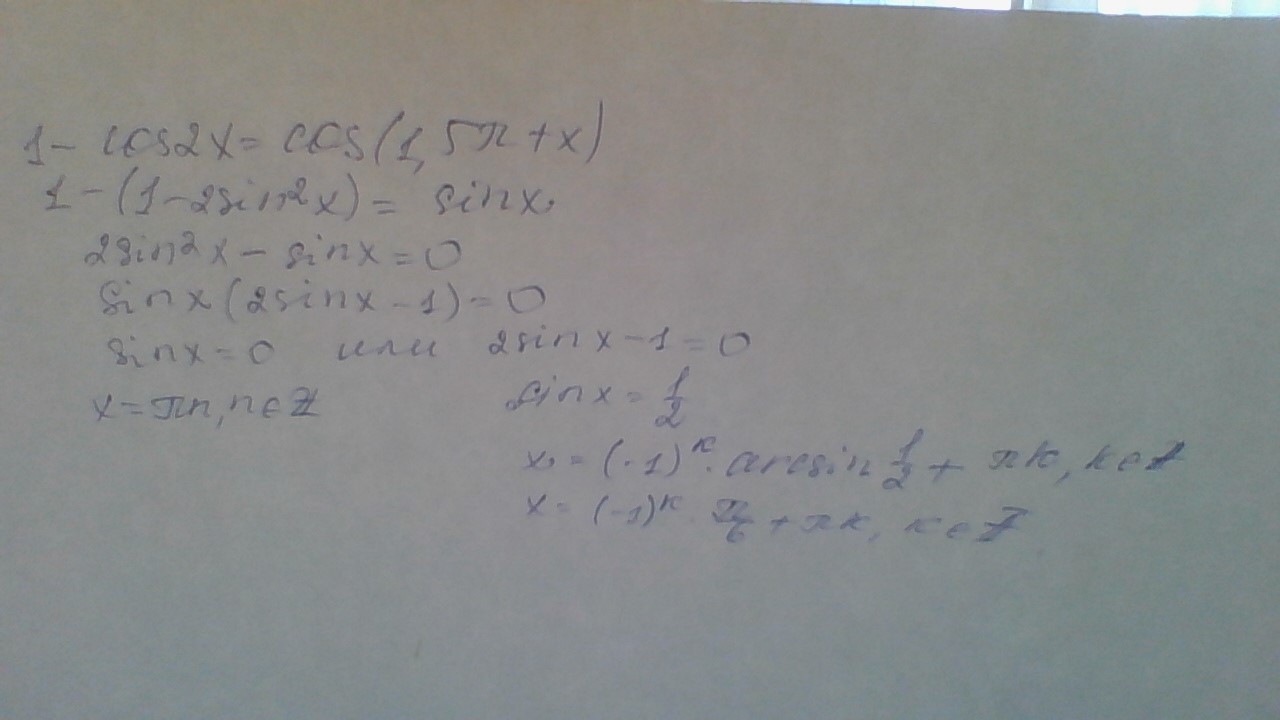 1 - cos2x = cos(1,5π + x)
1 - (1 - 2sin²x) = sinx
2sin²x - sinx = 0
sinx(2sinx - 1) = 0
sinx = 0 или 2sinx - 1 = 0
x = πn, n∈Z sinx = 1/2
x = (-1)ᴷ · arcsin 1/2 + πк, к∈Z
x = (-1)ᴷ · π/6 + πк, к∈Z